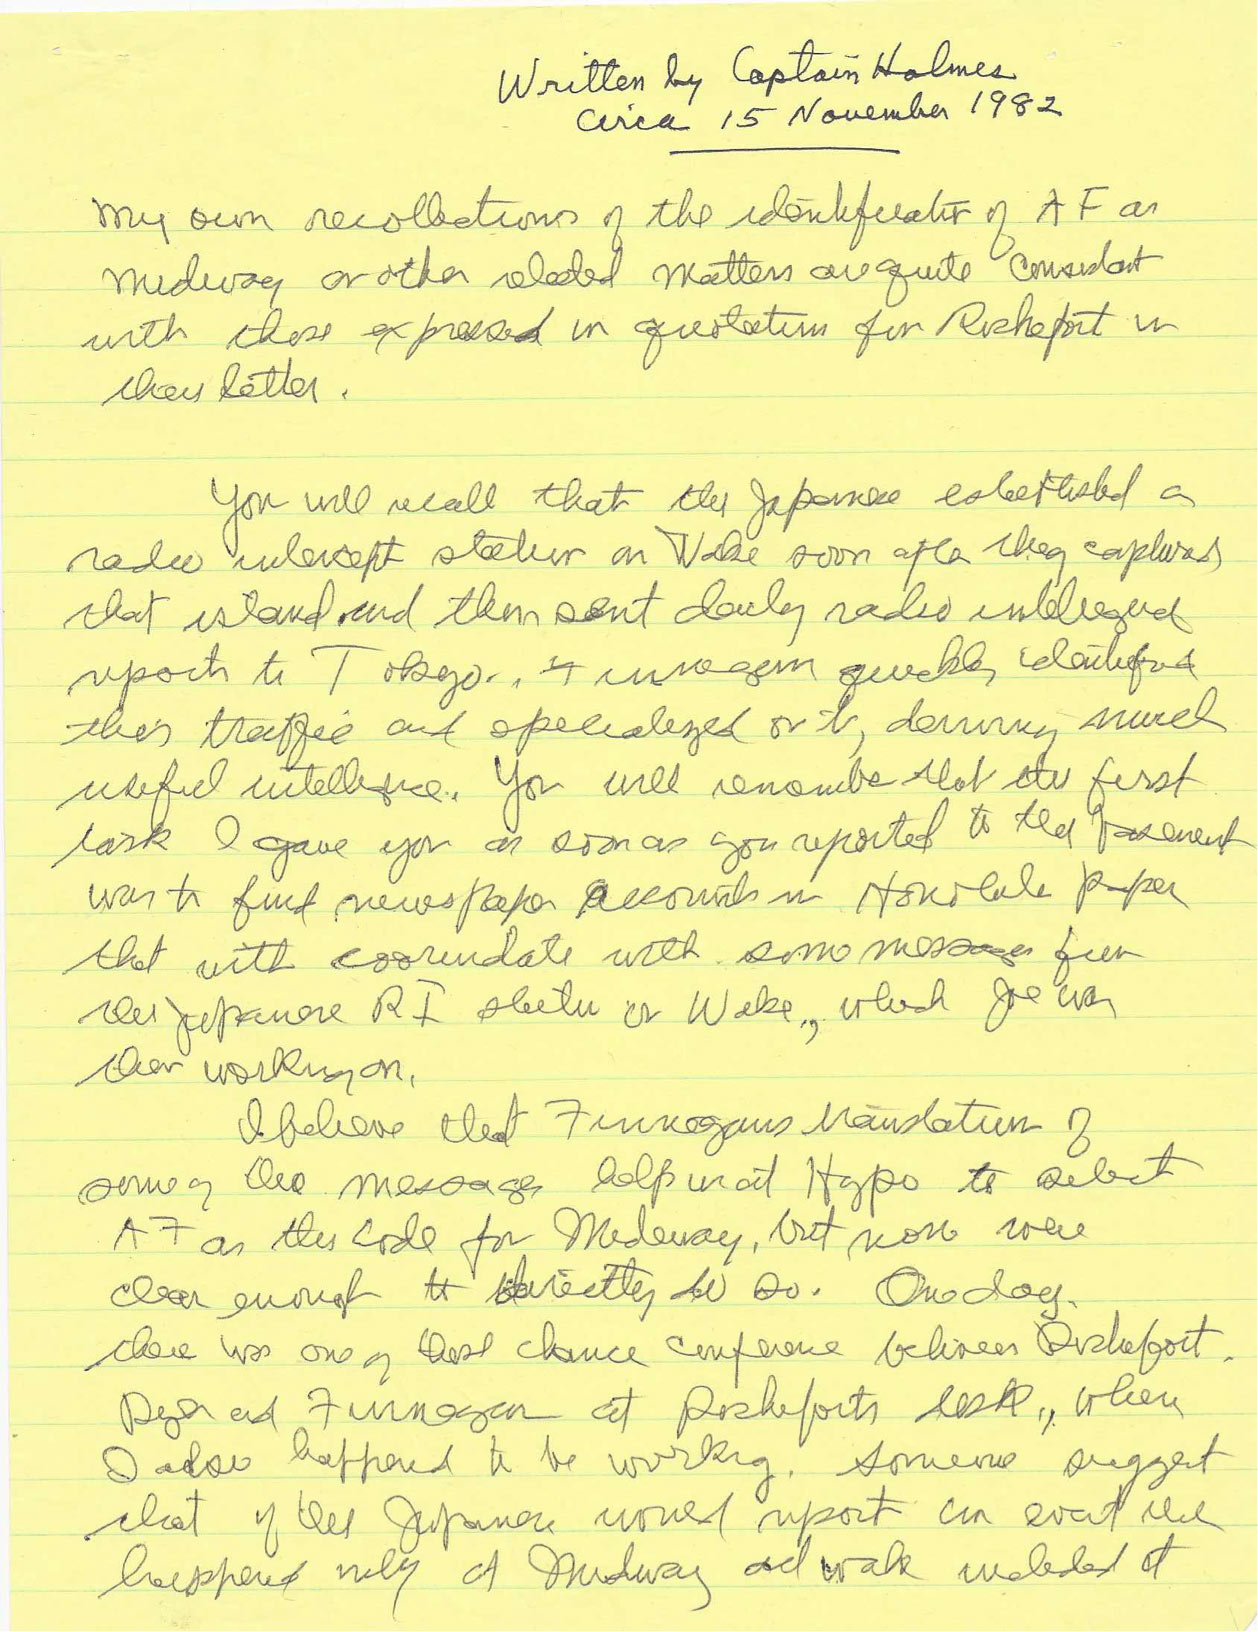 Written by Captain Holmes
Circa 15 November 1982
My own recollections of the identification of AF as
Midway or other related matters are quite consistent
with those expressed in quotations from Rochefort in
this letter.
You will recall that the Japanese established a
radio intercept station on Wake soon after they captured
that island and then sent daily radio intelligence
reports to Tokyo. Finnegan quickly identified
this traffic and specialized on it, deriving much
useful intelligence. You will remember that the first
task I gave you as soon as you reported to the basement
was to find newspaper accounts in Honolulu paper
that with coorindate with some message from
the Japanese RI station on Wake, which Joe was
then working on.
I believe that Finnegans translation of
some of the messages help us at Hypo to select
AF as the code for Midway, but none were
clear enough to directly do so. One day
there was one of those chance conference between Rochefort.
Dyer and Finnegan at Rocheforts desk, where
I also happened to be working. Someone suggest
that if the Japanese would report an event that
happened only at Midway and Wake included it